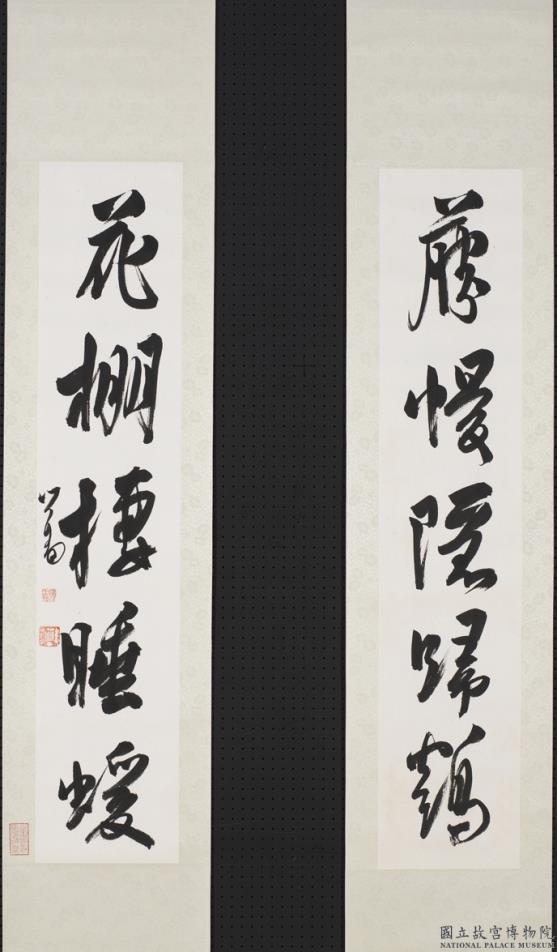 藤幔隱歸鶴
花棚棲睡蝯
心畬
國立故宮博物院
NATIONAL PALACE MUSEUM